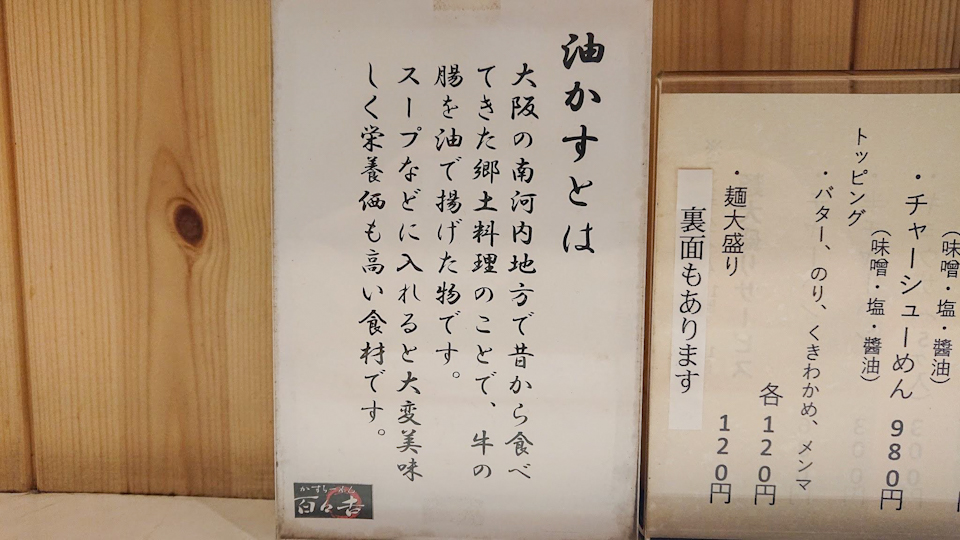 油かすとは
大阪の南河内地方で昔から食べ
てきた郷土料理のことで、牛の
腸を油で揚げた物です。
スープなどに入れると大変美味
しく栄養価も高い食材です。
かすらーめん
百々吉
(味噌・塩・醬油)
・チャーシューめん 980円
(味噌・塩・醬油)
トッピング
・バター、のり、くきわかめ、メンマ
各120円
・麺大盛り 120円
裏面もあります